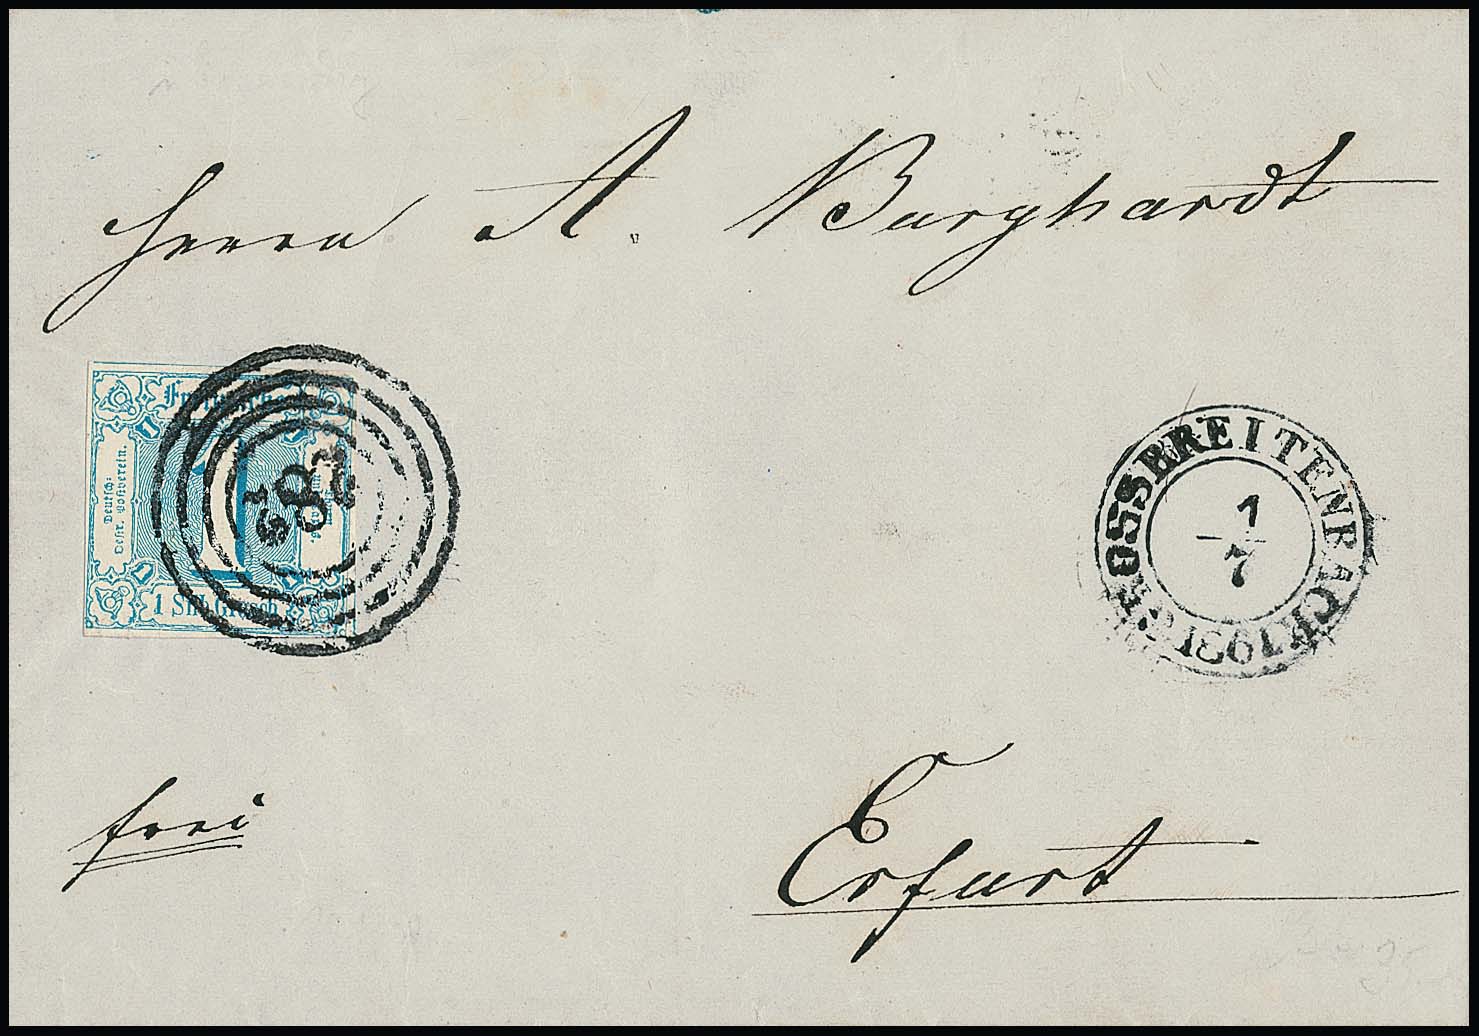 Herrn A. Burghardt
Freimarke
Deutsch-
Oestr. Postverein.
1
1 Silb. Grosch.
GROSSBREITENBACH
1
7
frei
Erfurt